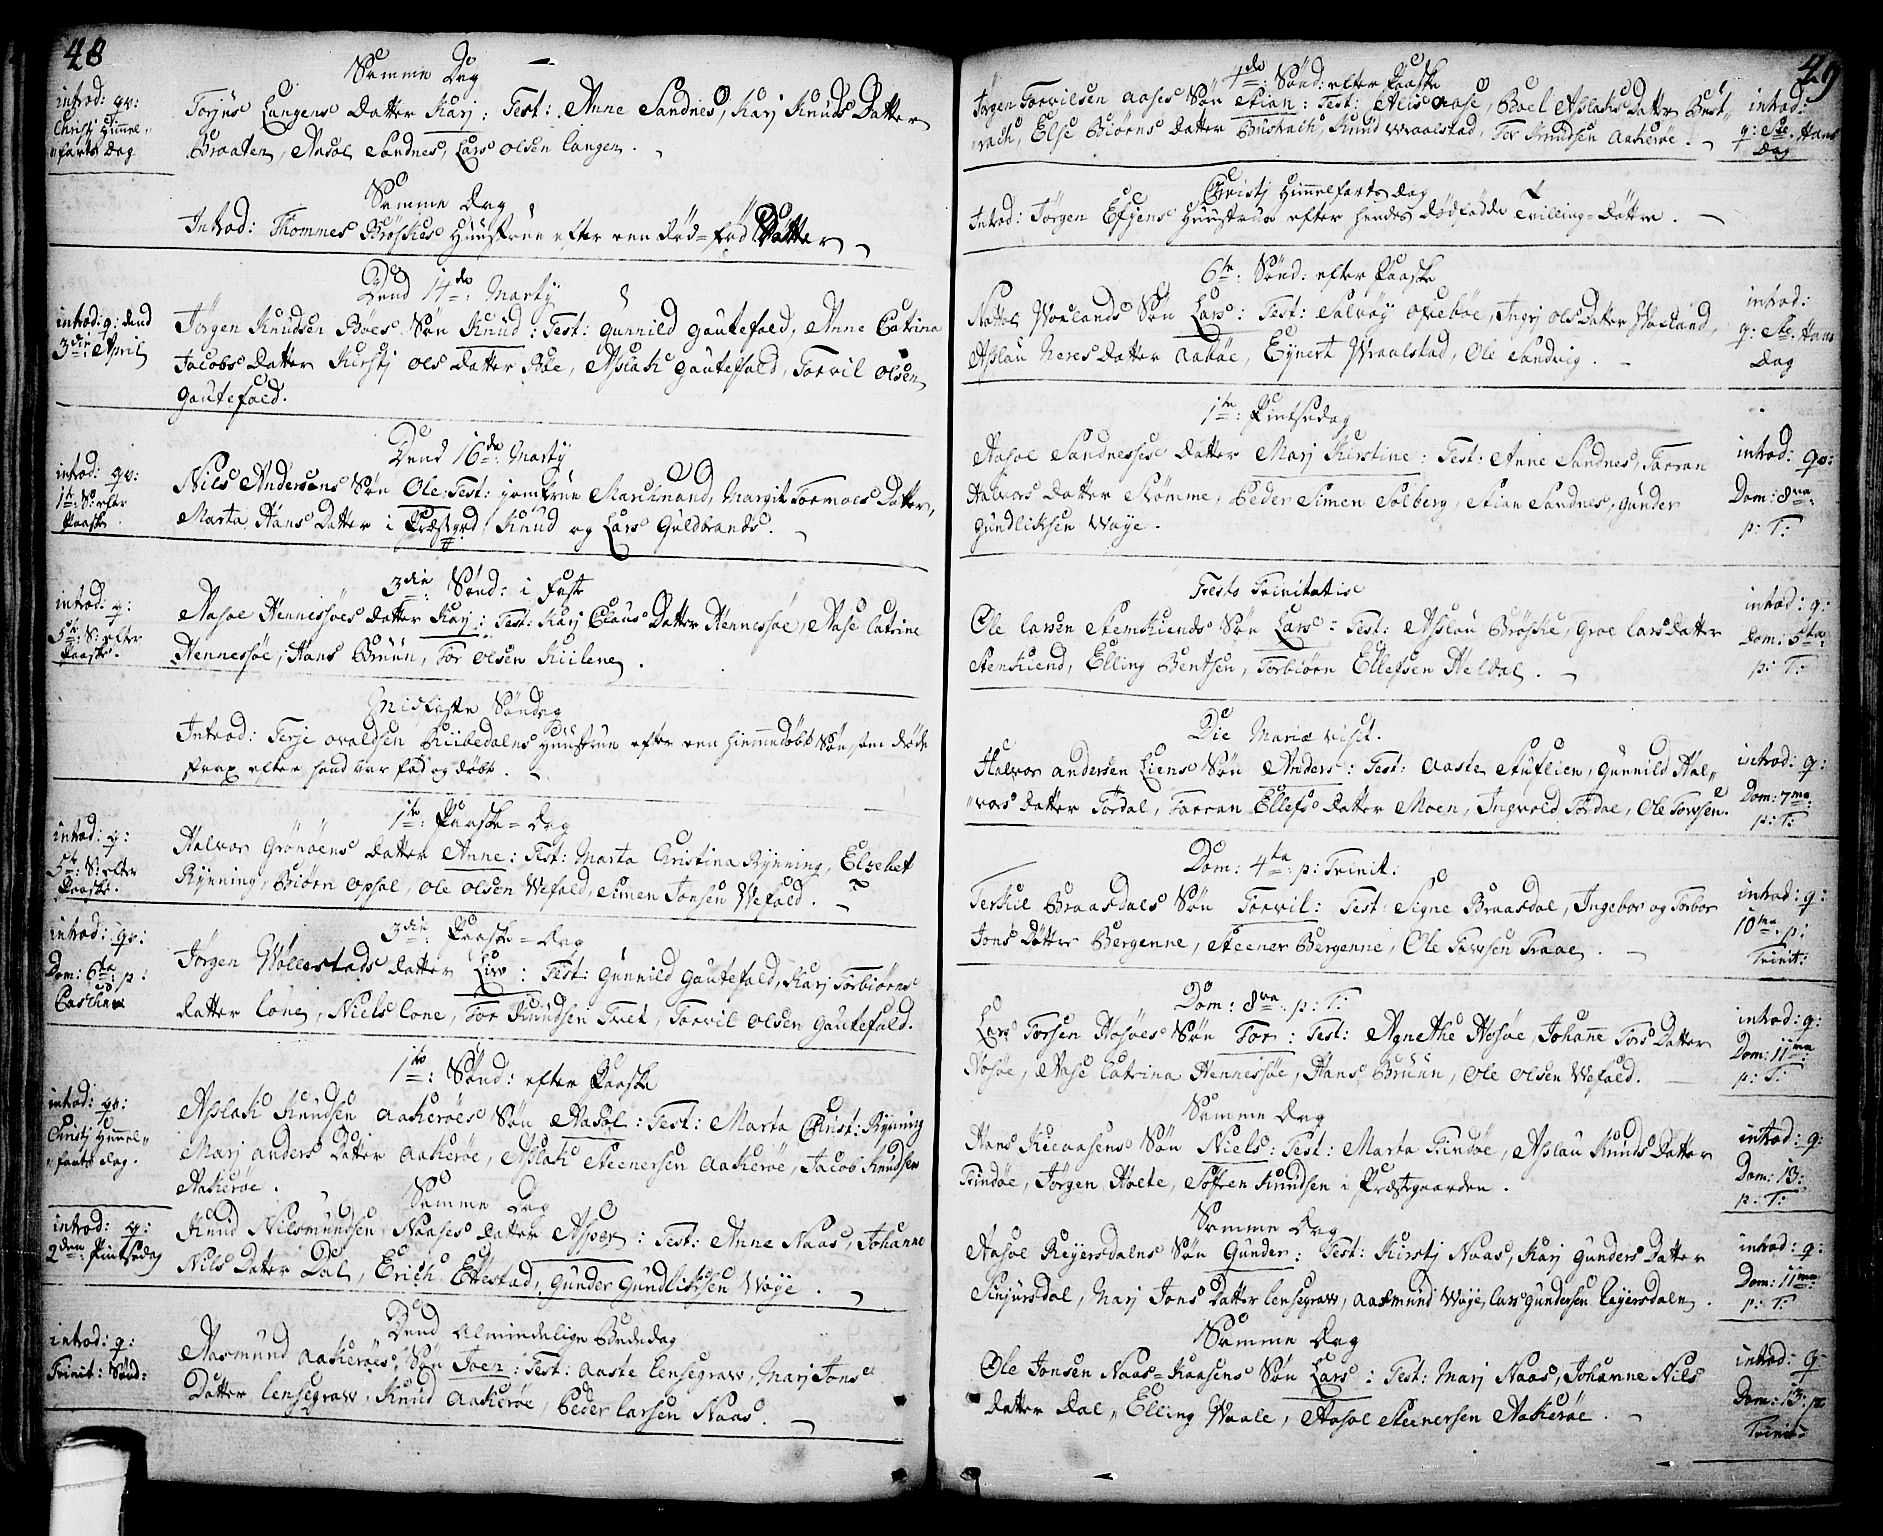 48
Samme Dag
introd: qv:
Christj Himel„
„farts Dag
Torjus Langens Datter Karj: Test: Anne Sandnes, Karj Knuds Datter
Braaten, Aasol Sandnes, Lars Olsen Langen.
Samme Dag
Introd: Thomnes Brøskes Huustrue efter een død-fød Datter
Dend 14de Martij
introd: q: dend
3die April
Jørgen Knudsen Bøes Søn Knud: Test: Gunnild Gautefald, Anne Catrina
Jacobs Datter Kirstj Ols Datter Bøe, Aslak Gautefald, Torvil Olsen
Gautefald.
Dend 16de Martij
introd: qv:
1te S: efter
Paaske
Nils Andersens Søn Ole: Test: jomfrue Mardinand, Margit Tormoes Datter,
Marta Hans Datter i Præstgrd, Knud og Lars Guldbrands.
3die Sønd: i faste
introd: q:
5te S: efter
Paaske.
Aasol Hennessøes Datter Karj: Test: Karj Claus Datter Hennessøe, Aase Catrine
Hennessøe, Hans Bruun, Tor Olsen Kiilene.
Midfaste Søndag
Introd: Terje Oraldsen Kiibedalens Huustrue efter een hiemmedøbt Søn, som døde
strax efter hand var fød og døbt.
1te Paaske-Dag
introd: q:
5te S: efter
Paaske.
Halvor Grønøens Datter Anne: Test: Marta Christina Rynning, Elsebet
Rynning, Biørn Opsal, Ole Olsen Wefald, Simen Jonsen Wefald.
3die Paaske-Dag
introd: qv:
Dom: 6ta p:
Pascha
Jørgen Wollestads Datter Liv: Test: Gunnild Gautefald, Karj Torbiørns
Datter Lone, Niels Lone, Tor Knudsen Tret, Torvil Olsen Gautefald.
1te Sønd: efter Paaske
introd: qv:
Christj Himel„
„farts Dag.
Aslak Knudsen Aakerøes Søn Aasol: Test: Marta Christ: Rynning
Marj Anders Datter Aakerøe, Aslak Steenersen Aakerøe, Jacob Knudsen
Aakerøe.
Samme Dag
introd: q:
2den Pintsedag
Knud Nilsmundsen Naases Datter Asper: Test: Anne Naas, Johanne
Nils Datter Dal, Erich Ettestad, Gunder Gundlichsen Waje.
Dend Almindelige Bededag
introd: q:
Trinit: Sønd:
Aasmund Aakerøes Søn Joen: Test: Aaste Lensegrav, Marj Jons
Datter Lensegrav, Knud Aakerøe, Peder Larsen Naas.
49
4de Sønd: efter Paaske
Jørgen Torvilsen Aases Søn Stian: Test: Alis Aase, Boel Aslaks Datter Bust„
„rach, Else Biørns Datter Bustrach, Knud Wraalstad, Tor Knudsen Aakerøe.
introd:
q: Ste Hans
Dag
Christj Himmelfarts Dag
Introd: Jørgen Efjens Huustrue efter hendes dødfødde Tvilling-Døttre.
6te Sønd: efter Paaske
Nattol Woxlands Søn Lars: Test: Salvøy Ofrebøe, Ingrj Ols Datter Woxland,
Aslau Neres Datter Aabøe, Eynert Wraalstad, Ole Sandvig.
introd:
q: Ste Hans
Dag
1te Pintsedag
Aasol Sandnesses Datter Marj Kirstine: Test: Anne Sandnes, Torran
Halvors Datter Strømme, Peder Simen Solberg, Stian Sandnes, Gunder
Gundliksen Waje.
introd: qv:
Dom: 8va
p: T:
Festo Trinitatis
Ole Larsen Stemkiends Søn Lars: Test: Aslau Brøskie, Groe Lars Datter
Stenkiend, Elling Bentsen, Torbiørn Ellefsen Heldal.
introd: q:
Dom: 5ta
p: T:
Die Mariæ Visit.
Halvor Andersen Liens Søn Anders: Test: Aaste Stuflien, Gunnild Hal„
„vors Datter Tordal, Torran Ellefs Datter Moen, Ingvold Tordal, Ole Torsen.
introd: q:
Dom: 7ma
p: T:
Dom: 4ta p: Trinit:
Terkiel Braasdals Søn Torvil: Test: Signe Braasdal, Ingebor og Torbor
Jons Døttre Bergenne, Steener Bergenne, Ole Tovsen Traae.
introd: q:
10ma p:
Trinit:
Dom: 8va p: T:
Lars Torsen Hosøes Søn Tor: Test: Agnethe Hosøe, Johane Tors Datter
Hosøe, Aase Catrina Hennessøe, Hans Bruun, Ole Olsen Wefald.
introd: q:
Dom: 11ma
p: T:
Samme Dag
Hans Kieaasens Søn Niels: Test: Marta Tindøe, Aslau Knuds Datter
Tindøe, Jørgen Holte, Soffren Knudsen i Præstgaarden.
introd: q:
Dom: 13:
p: T:
Samme Dag
Aasol Reiersdalens Søn Gunder: Test: Kirstj Naas, Karj Gunders Datter
Sinjursdal, Marj Jons Datter Lensegrav, Aasmund Waje, Lars Gundersen Reiersdalen.
introd: q:
Dom: 11ma
p: T:
Samme Dag
Ole Jonsen Naas-Kaasens Søn Lars: Test: Marj Naas, Johanne Nils
Datter Dal, Elling Waale, Aasol Steenersen Aakerøe.
introd: q:
Dom: 13: p
Trinit: